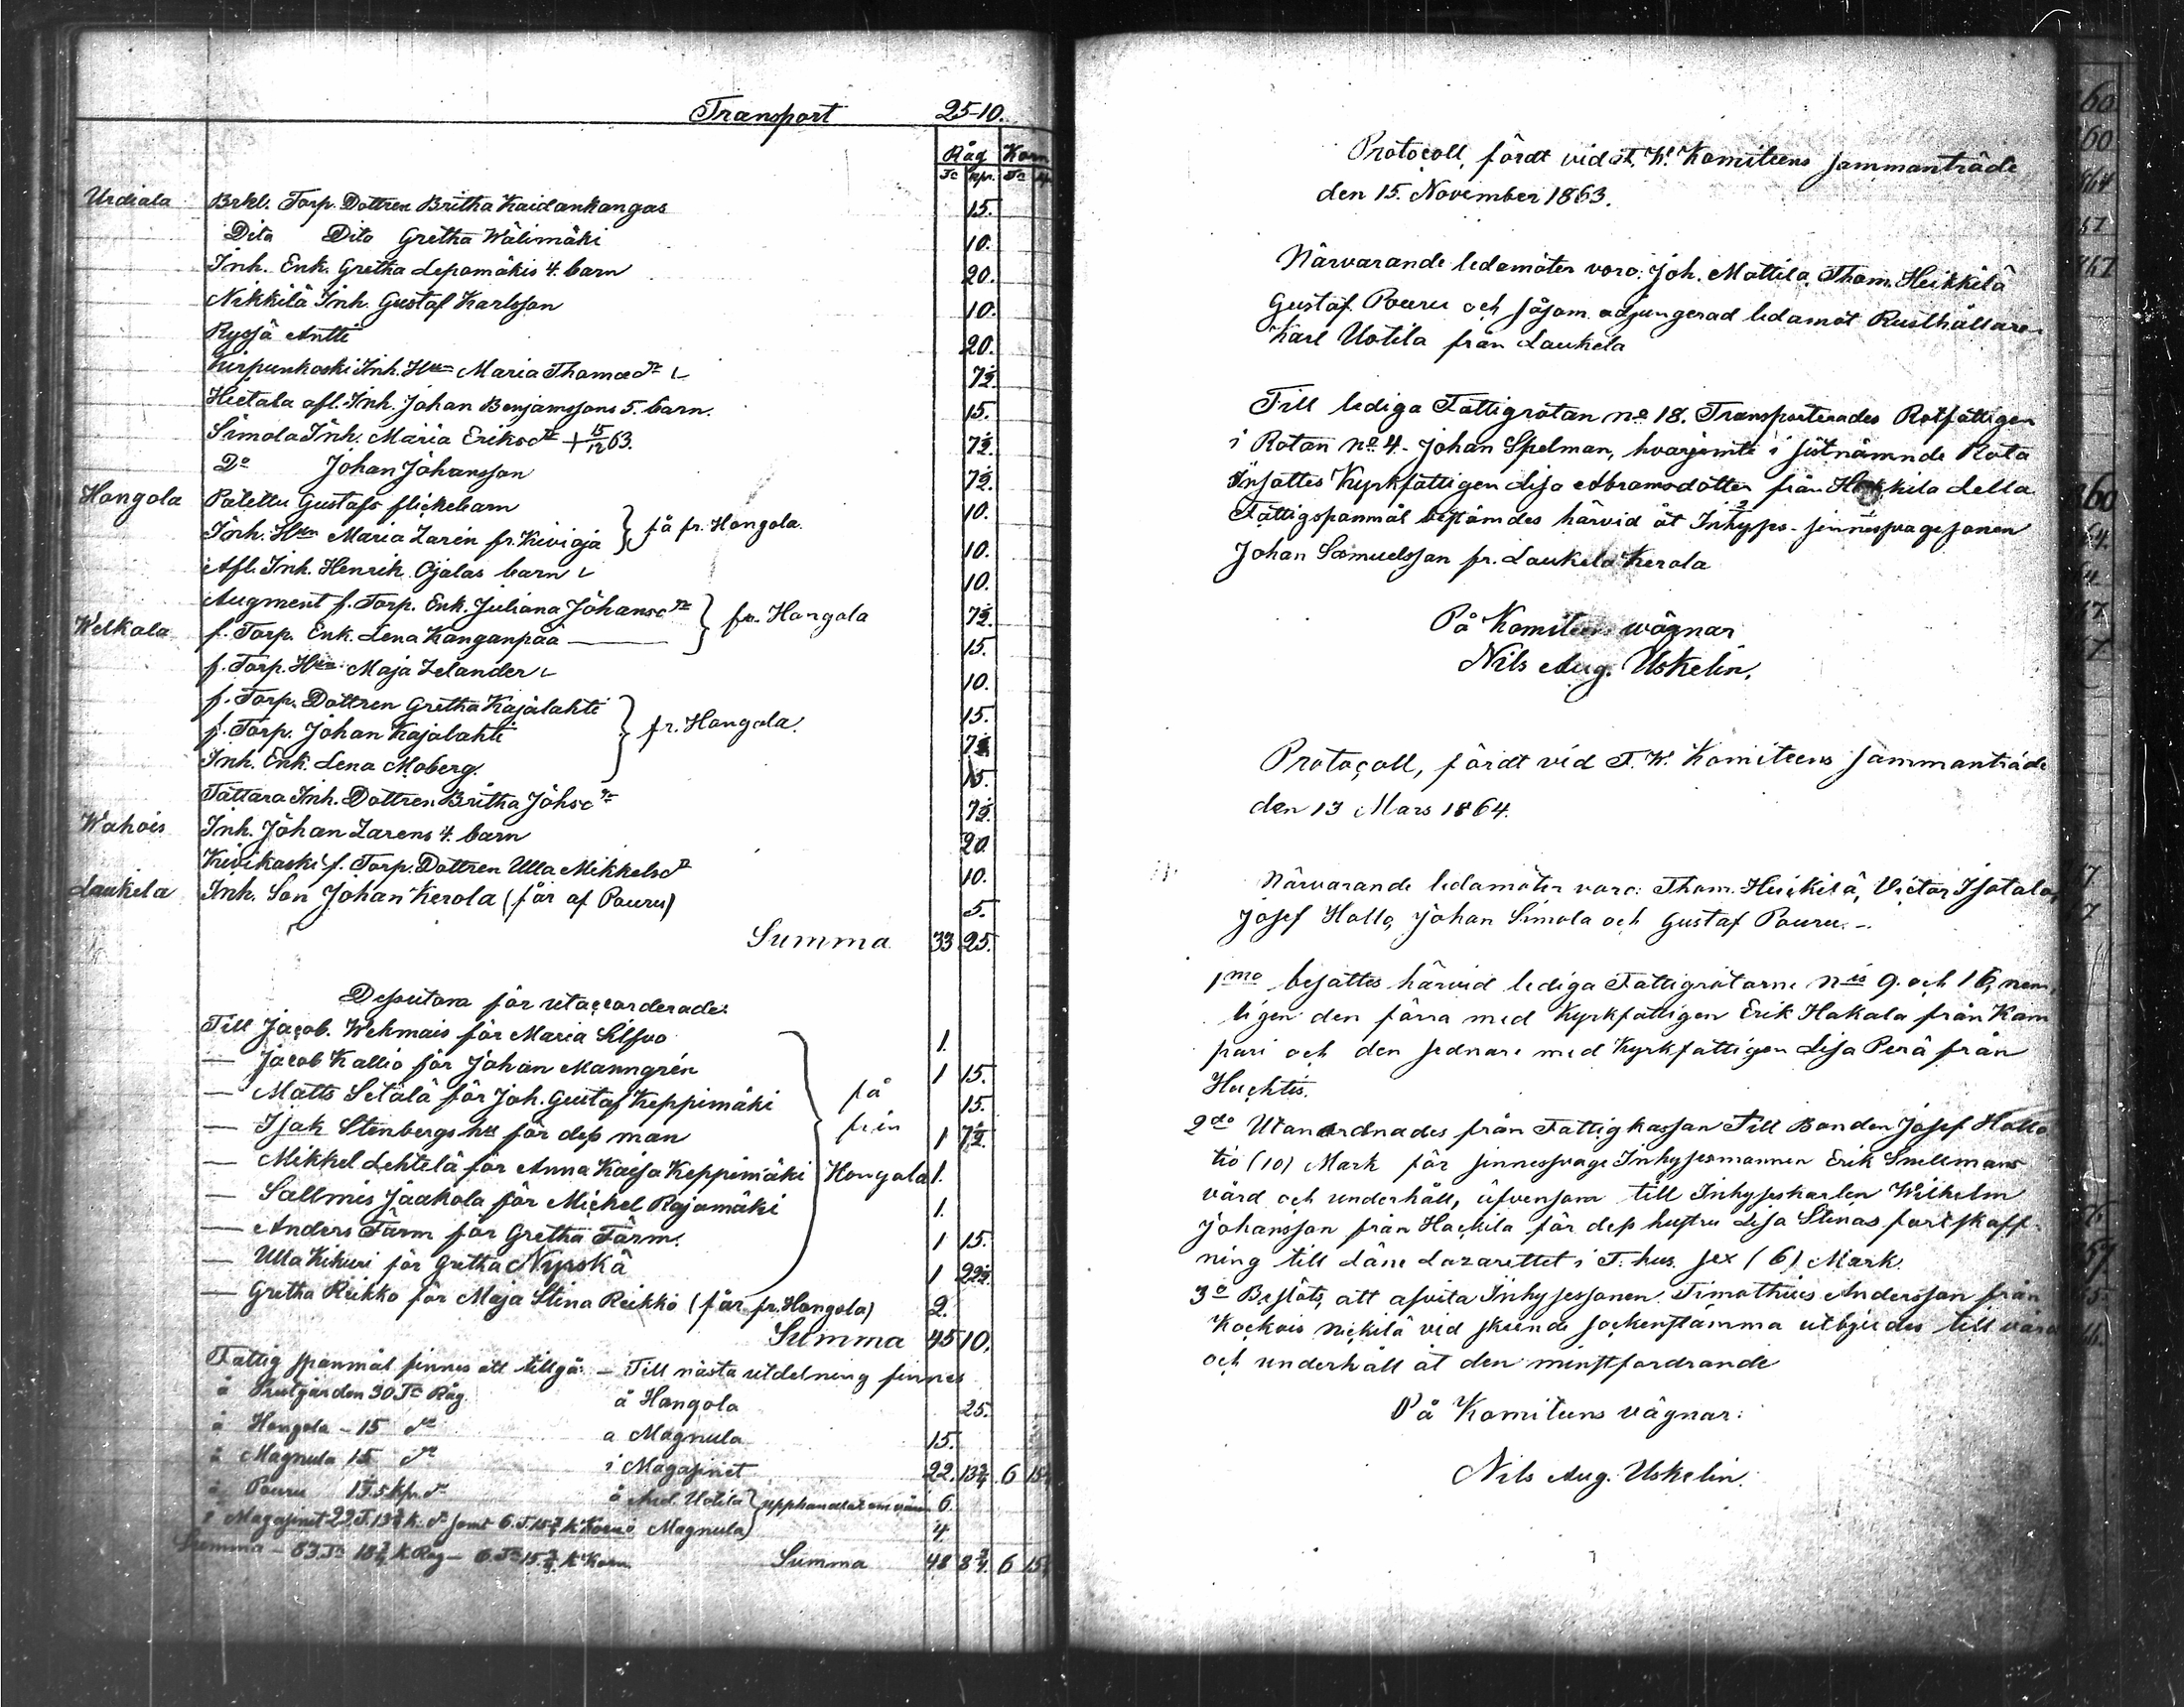 Transport 25-10.
Råg Korn
Tr kpr. Tr
Urdiala Brkl. Torp. Dottren Britha Kaidankangas 15.
Dito Dito Gretha Wälimäki 10.
Inh. Enk. Gretha Lepomäkis 4. barn 20.
Nikkilä Inh. Gustaf Karlsson 10.
Ryssä Antti 20.
Kirpunkoski Inh. Hu Maria Thomædr 7½.
Hietala afl. Inh. Johan Benjamssons 5. barn. 15.
Simola Inh. Maria Eriksdr + 15/12 63. 7½.
Do Johan Johansson 7½.
Hongola Palettu Gustafs flickebarn 10.
Inh. Hun Maria Zarén fr. Kivioja } få fr. Hongola. 10.
Afl. Inh. Henrik Ojalas barn 10.
Augment f. Torp. Enk. Juliana Johansdr } fr. Hongola 7½.
Welkala f. Torp. Enk. Lena Kanganpää 15.
f. Torp. Hun Maja Zelander 10.
f. Torp. Dottren Gretha Kajalahti 15.
f. Torp. Johan Kajalahti } fr. Hongola. 7½.
Inh. Enk. Lena Moberg. 15.
Tattara Inh. Dottren Britha Johsdr 7½.
Wahois Inh. Johan Zarens 4. barn 20.
Kivikoski f. Torp. Dottren Ulla Mikkelsdr 10.
Laukela Inh. Son Johan Kerola (får af Pouru) 5.
Summa 33 25.
Deputera för utaccorderade:
Till Jacob. Wehmais för Maria 1.
— Jacob Kallio för Johan Manngrén 1 15.
— Matts Setälä för Joh. Gustaf Keppimäki få 15.
— Isak Stenbergs hu för dess man från 1 7½.
— Mikkel Lehtelä för Anna Kaisa Keppimäki Hongola 1.
— Sallmis Jaakola för Michel Rajamäki 1.
— Anders Färm för Gretha Färm. 1 15.
— Ulla Kikuri för Gretha Nyrskä 1 22½.
— Gretha Reikko för Maja Stina Reikko (får fr. Hongola) 2.
Summa 45 10.
Fattig spanmål finnes att tillgå: — Till nästa utdelning finnes
å Prestgården 30 Tr Råg. å Hongola 25.
å Hongola - 15 dr å Magnula 15.
å Magnula 15 dr i Magasinet 22. 13¾. 6 15¾
å Pouru 1 T. 5 kp. dr å And. Uotila } 6.
i Magasinet 22 T. 13¾ k. dr samt 6. T. 15¾ k Korn å Magnula 4.
Summa - 83. Tr 18¾ k Råg - 6. Tr 15¾ k Korn Summa 48 8¾. 6 15¾
Protocoll, fördt vid F. W. Komiteens sammanträde
den 15. November 1863.
Närvarande ledamöter voro: Joh. Mattila, Thom. Heikkilä
Gustaf Pouru och såsom adjungerad ledamot Rusthållaren
Karl Uotila från Laukela
Till lediga Fattigrotan No 18. Transporterades Rotfattigen
i Rotan No 4. Johan Spelman, hvarjemte i sistnämnde Rota
insattes Kyrkfattigen Lisa Abramsdotter från Lella.
Fattigspanmål bestämdes härvid åt Inhyses-sinnessvage sonen
Johan Samuelsson fr. Laukela Kerola
På Komiteens wägnar
Nils Aug. Uskelin.
Protocoll, fördt vid F. W. Komiteens sammanträde
den 13 Mars 1864.
Närvarande ledamöter voro: Thom. Heickilä, Victor Isotalo,
Josef Hollo, Johan Simola och Gustaf Pouru. -
1mo besattes härvid lediga Fattigrotarne Nis 9. och 16, nem-
ligen den förra med Kyrkfattigen Erik Hakala från Kam
pari och den sednare med Kyrkfattigen Lisa Perä från
Huhtis.
2do Utanordnades från Fattigkassan Till Bonden Josef Hollo
tio (10) Mark för sinnessvage Inhysesmannen Erik Snellmans
vård och underhåll, äfvensom till Inhyseskarlen Wilhelm
Johansson från Hackila för dess hustru Lisa Stinas fortskaff-
ning till Läne Lazarettet i T. hus sex (6) Mark.
3o Beslöts, att afvita Inhysessonen Timothius Andersson från
Kockois nickilä vid skeende sockenstämma utbjudes till vård
och underhåll åt den minstfordrande
På Komiteens vägnar:
Nils Aug. Uskelin.